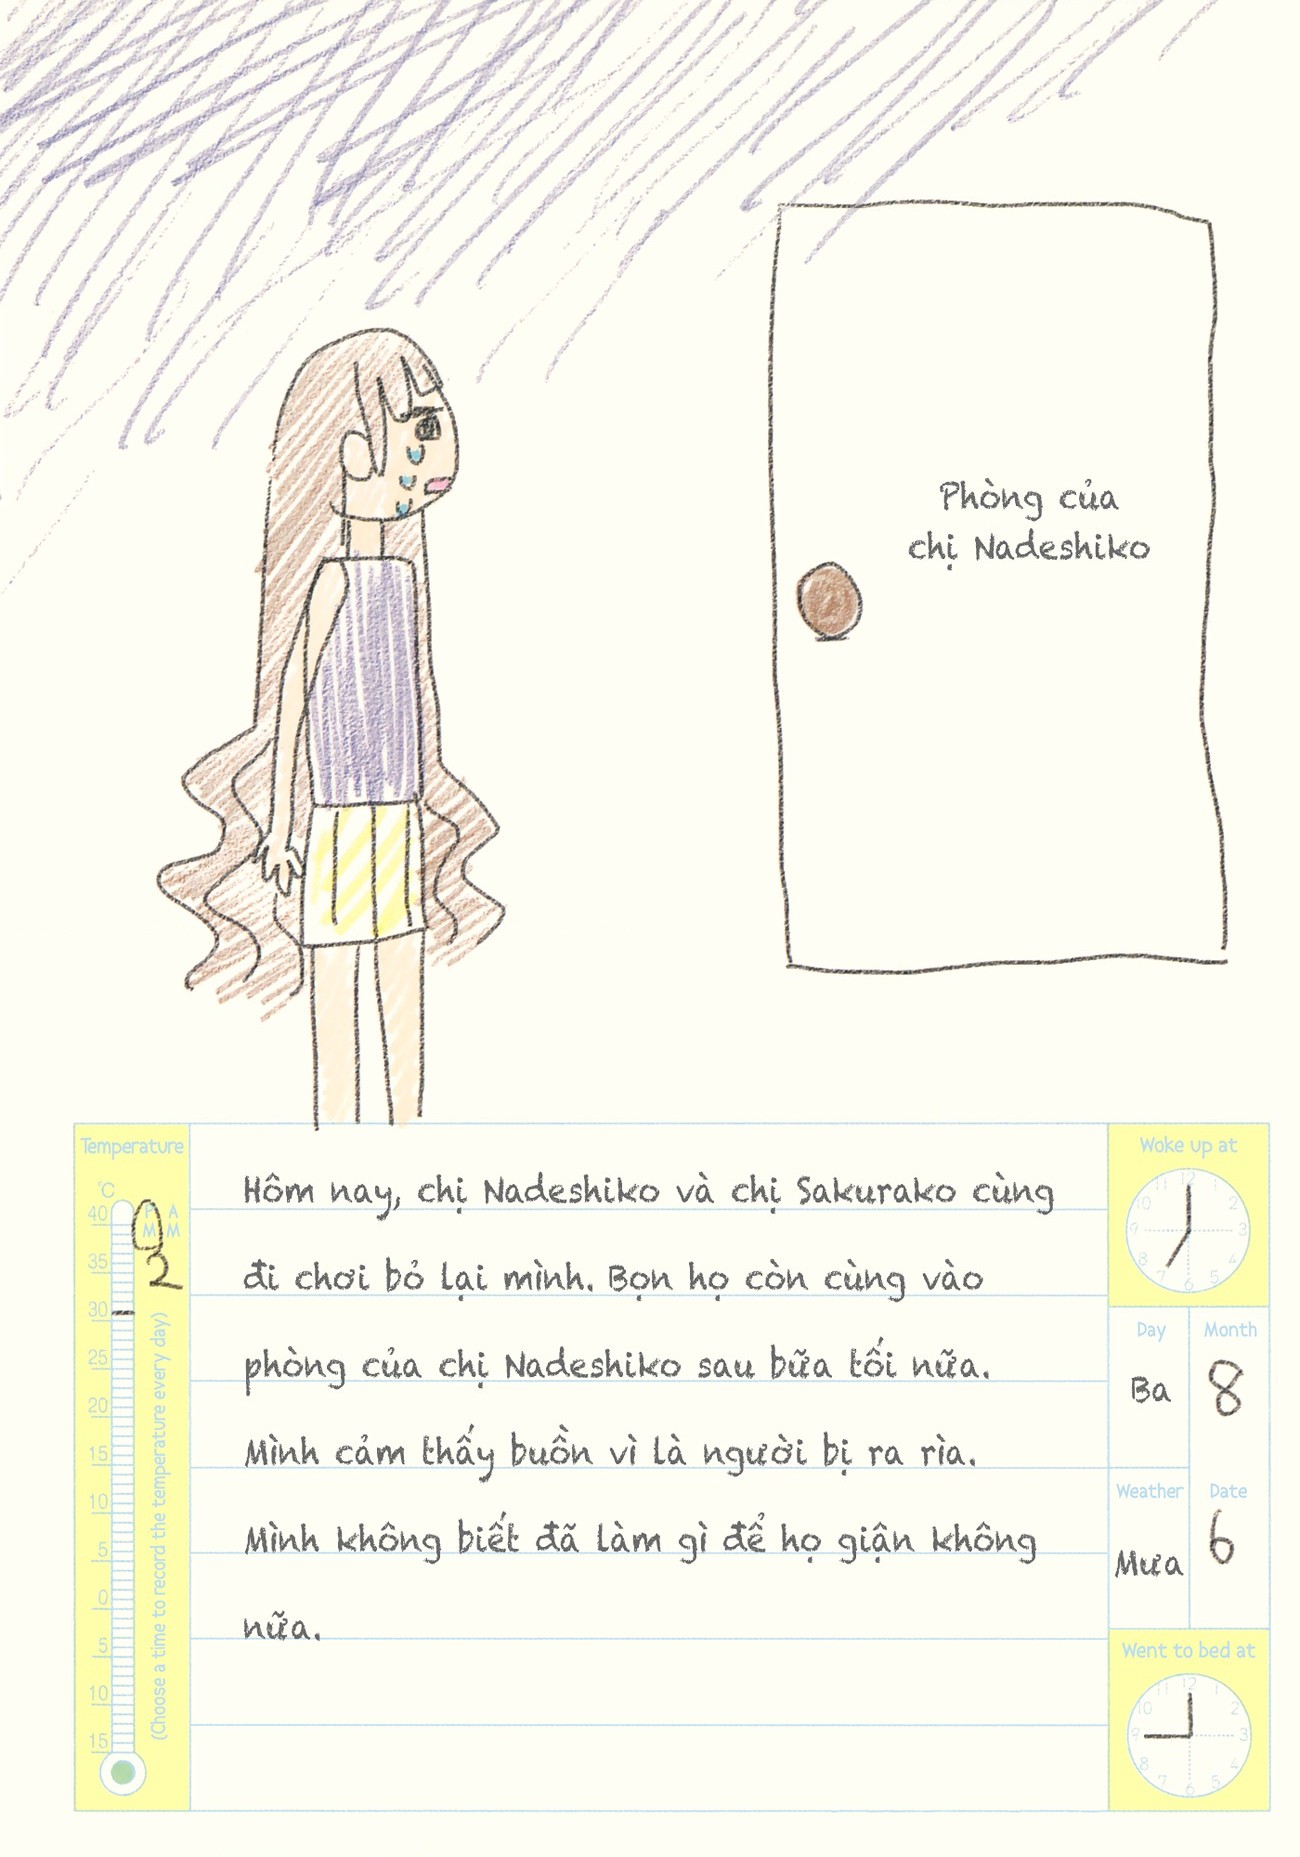 Phòng của
chị Nadeshiko
Temperature
°C
P A
M M
40
2
35
30
25
20
15
10
5
0
5
10
15
(Choose a time to record the temperature every day)
Hôm nay, chị Nadeshiko và chị Sakurako cùng
đi chơi bỏ lại mình. Bọn họ còn cùng vào
phòng của chị Nadeshiko sau bữa tối nữa.
Mình cảm thấy buồn vì là người bị ra rìa.
Mình không biết đã làm gì để họ giận không
nữa.
Woke up at
11 12 1
10 2
9 3
8 4
7 6 5
Day Month
Ba 8
Weather Date
Mưa 6
Went to bed at
11 12 1
10 2
9 3
8 4
7 6 5